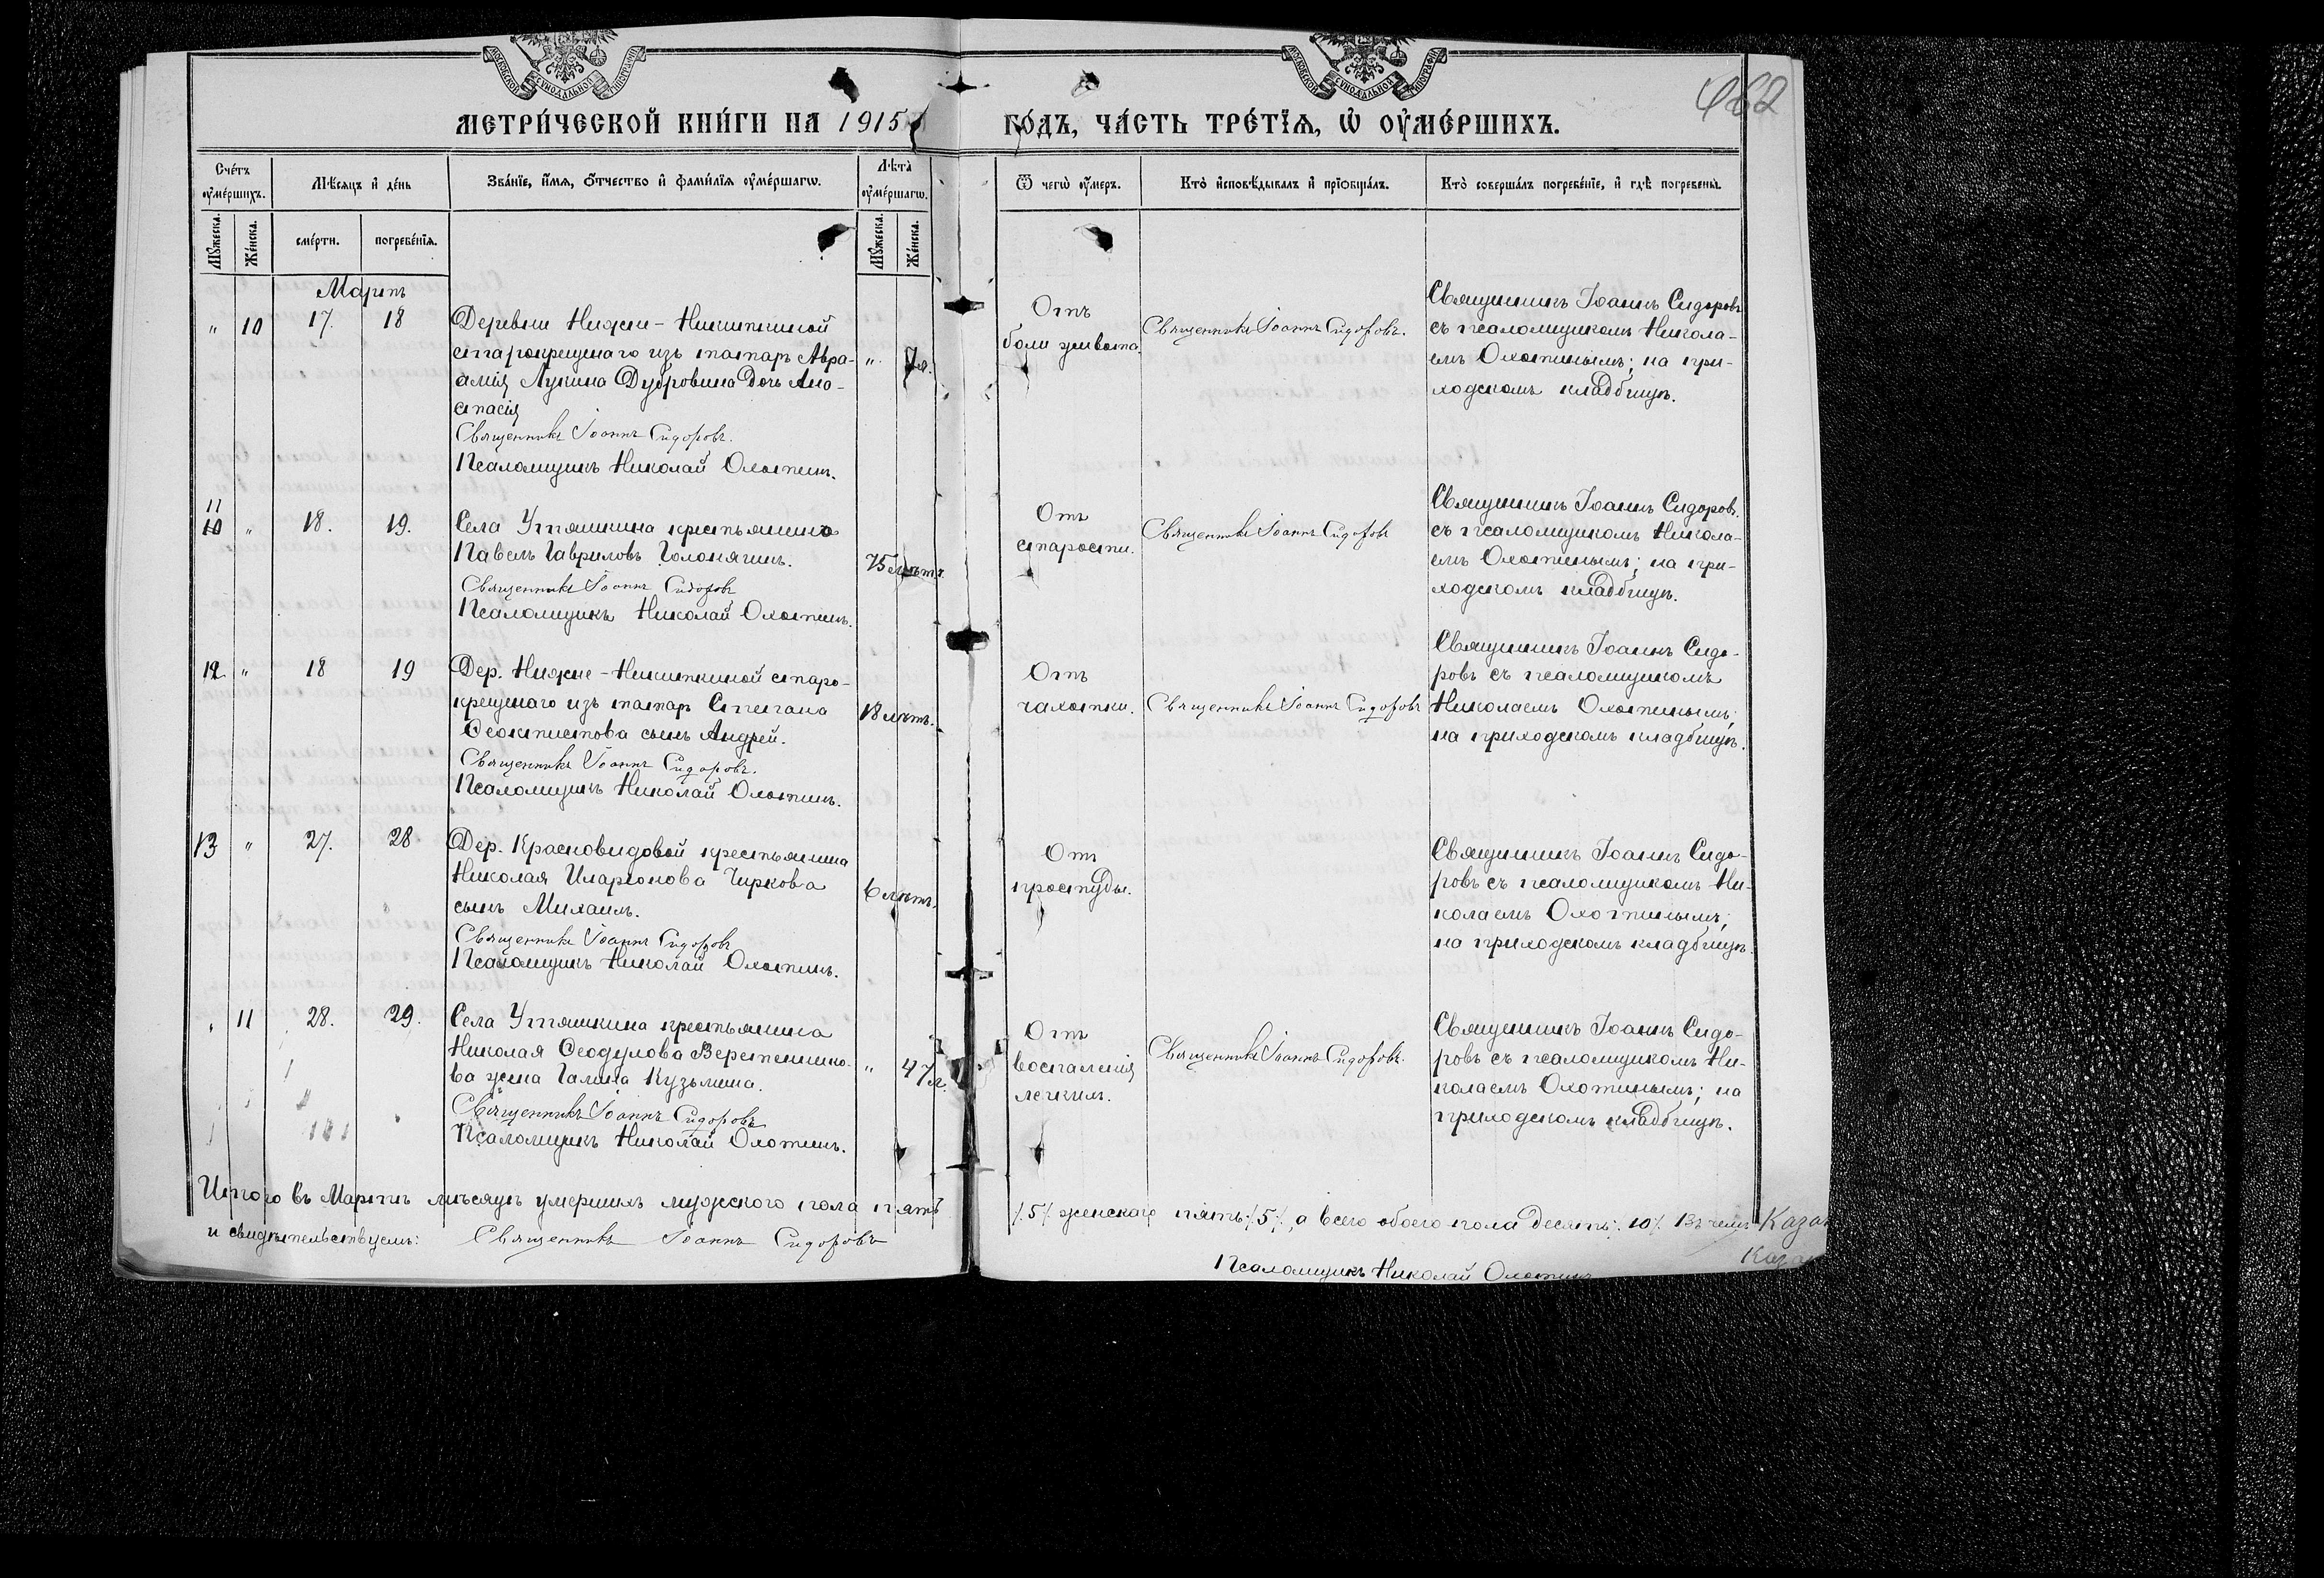 МОСКОВСКОЙ СѴНОДАЛЬНОЙ ТИПОГРАФІИ
МОСКОВСКОЙ СѴНОДАЛЬНОЙ ТИПОГРАФІИ
462
МЕТРИ́ЧЕСКОЙ КНИ́ГИ НА 1915 ГО́ДЪ, ЧА́СТЬ ТРЕ́ТЇѦ, Ѡ҆ ОУ҆МЕ́РШИХЪ.
Сче́тъ оу҆ме́ршихъ.
Мѣ́сяцъ и҆ де́нь
Зва́нїе, и҆́мѧ, ѻ҆́тчество и҆ фами́лїѧ оу҆ме́ршагѡ.
Лѣ́та оу҆ме́ршагѡ.
Ѿ чегѡ̀ оу҆́меръ.
Кто̀ и҆сповѣ́дывалъ и҆ прїѻбща́лъ.
Кто̀ соверша́лъ погребе́нїе, и҆ гдѣ̀ погребены̀.
Мꙋ́жеска.
Же́нска.
сме́рти.
погребе́нїѧ.
Мꙋ́жеска.
Же́нска.
Мартъ
" 10 17. 18
Деревни Нижне-Никиткиной
старокрещенаго изъ татаръ Авра-
амія Лукина Дубровина дочь Ана-
стасія
Священникъ Іоаннъ Сидоровъ.
Псаломщикъ Николай Охотинъ.
"
Отъ
боли живота.
Священникъ Іоаннъ Сидоровъ.
Священникъ Іоаннъ Сидоровъ
съ псаломщикомъ Никола-
емъ Охотинымъ; на при-
ходскомъ кладбищѣ.
11
10 " 18. 19.
Села Утяшкина крестьянинъ
Павелъ Гавриловъ Голонягинъ.
Священникъ Іоаннъ Сидоровъ
Псаломщикъ Николай Охотинъ.
75 лѣтъ.
Отъ
старости.
Священникъ Іоаннъ Сидоровъ
Священникъ Іоаннъ Сидоровъ.
съ псаломщикомъ Никола-
емъ Охотинымъ; на при-
ходскомъ кладбищѣ.
12 " 18 19
Дер. Нижне-Никиткиной старо-
крещенаго изъ татаръ Степана
Феоктистова сынъ Андрей.
Священникъ Іоаннъ Сидоровъ.
Псаломщикъ Николай Охотинъ.
18 лѣтъ.
Отъ
чахотки.
Священникъ Іоаннъ Сидоровъ
Священникъ Іоаннъ Сидо-
ровъ съ псаломщикомъ
Николаемъ Охотинымъ;
на приходскомъ кладбищѣ.
13 " 27. 28
Дер. Красновидовой крестьянина
Николая Иларіонова Чиркова
сынъ Михаилъ.
Священникъ Іоаннъ Сидоровъ
Псаломщикъ Николай Охотинъ.
6 лѣтъ.
Отъ
простуды.
Священникъ Іоаннъ Сидо-
ровъ съ псаломщикомъ Ни-
колаемъ Охотинымъ;
на приходскомъ кладбищѣ.
" 11 28. 29.
Села Утяшкина крестьянина
Николая Феодулова Веретеннико-
ва жена Галина Кузьмина.
Священникъ Іоаннъ Сидоровъ
Псаломщикъ Николай Охотинъ.
" 47 л.
Отъ
воспаленія
легкихъ.
Священникъ Іоаннъ Сидоровъ.
Священникъ Іоаннъ Сидо-
ровъ съ псаломщикомъ Ни-
колаемъ Охотинымъ; на
приходскомъ кладбищѣ.
Итого въ Мартѣ мѣсяцѣ умершихъ мужского пола пять /.5/. женскаго пять /.5/., а всего обоего пола десять /.10/. Въ чемъ
и свидѣтельствуемъ: Священникъ Іоаннъ Сидоровъ
Псаломщикъ Николай Охотинъ